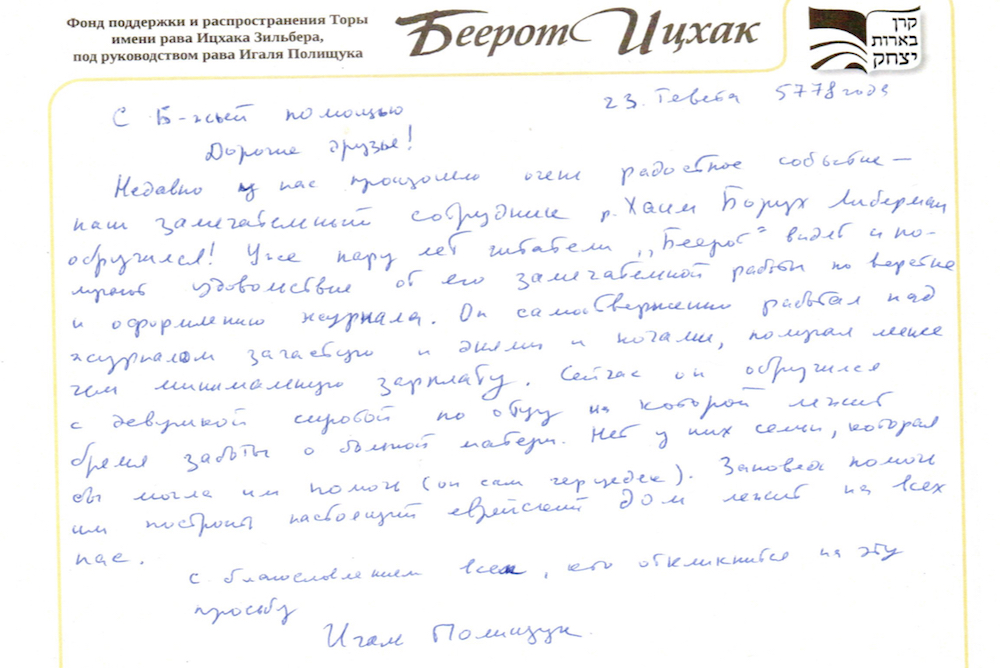 Фонд поддержки и распространения Торы
имени рава Ицхака Зильбера,
под руководством рава Игаля Полищука
Беерот Ицхак
קרן
בארות
יצחק
С Б-жьей помощью
23. Тевета 5778 года
Дорогие друзья!
Недавно у нас произошло очень радостное событие –
наш замечательный сотрудник р. Хаим Борух Либерман
обручился! Уже пару лет читатели „Беерот" видят и по-
лучают удовольствие от его замечательной работы по верстке
и оформлению журнала. Он самоотверженно работал над
журналом зачастую и днями и ночами, получая менее
чем минимальную зарплату. Сейчас он обручился
с девушкой сиротой по отцу на которой лежит
бремя заботы о больной матери. Нет у них семьи, которая
бы могла им помочь (он сам гер цедек). Заповедь помочь
им построить настоящий еврейский дом лежит на всех
нас.
с благословлением всем, кто откликнется на эту
просьбу
Игаль Полищук.